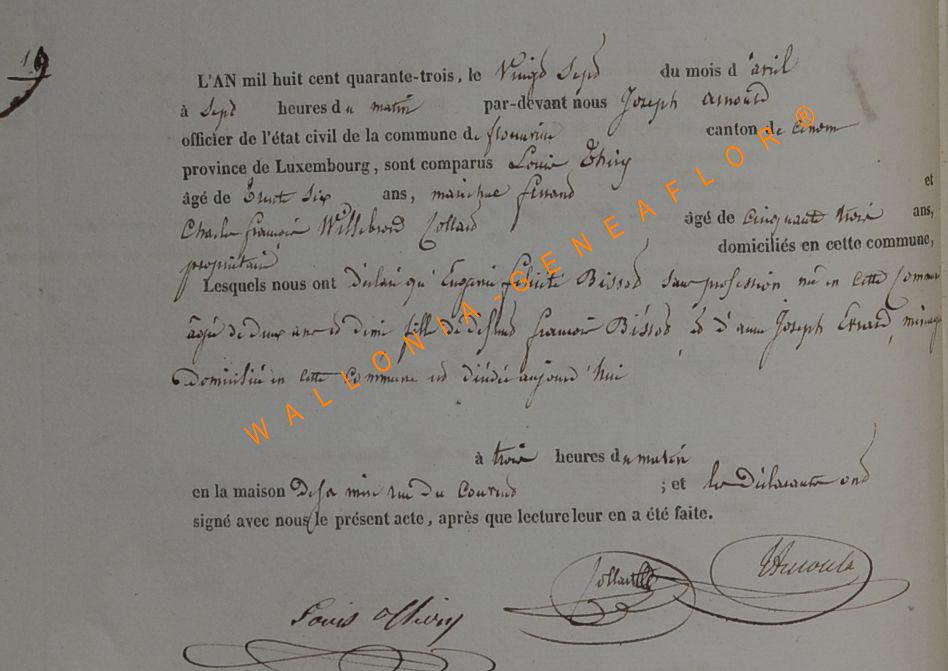 19
L'AN mil huit cent quarante-trois, le Vingt Sept du mois d'avril
à Sept heures du matin par-devant nous Joseph arnould
officier de l'état civil de la commune de florenville canton de idem
province de Luxembourg, sont comparus Louis Thiry
âgé de trente Six ans, marichal ferrand et
Charles françois Willebrord Collard âgé de cinquante trois ans,
propriétaire domiciliés en cette commune,
Lesquels nous ont déclaré qu'Eugenie félicité Bissot San profession née en cette Commune
agée de deux ans et demi fille de defunt françois Bissot et d'anne Joseph Evrard, ménag
Domiciliée en cette Commune est décédée aujourd'hui
à trois heures du matin
en la maison de sa mère rue du Couvent ; et les déclarants ont
signé avec nous le présent acte, après que lecture leur en a été faite.
Louis Thiry Collard Arnould
WALLONIA-GENEAFLOR®